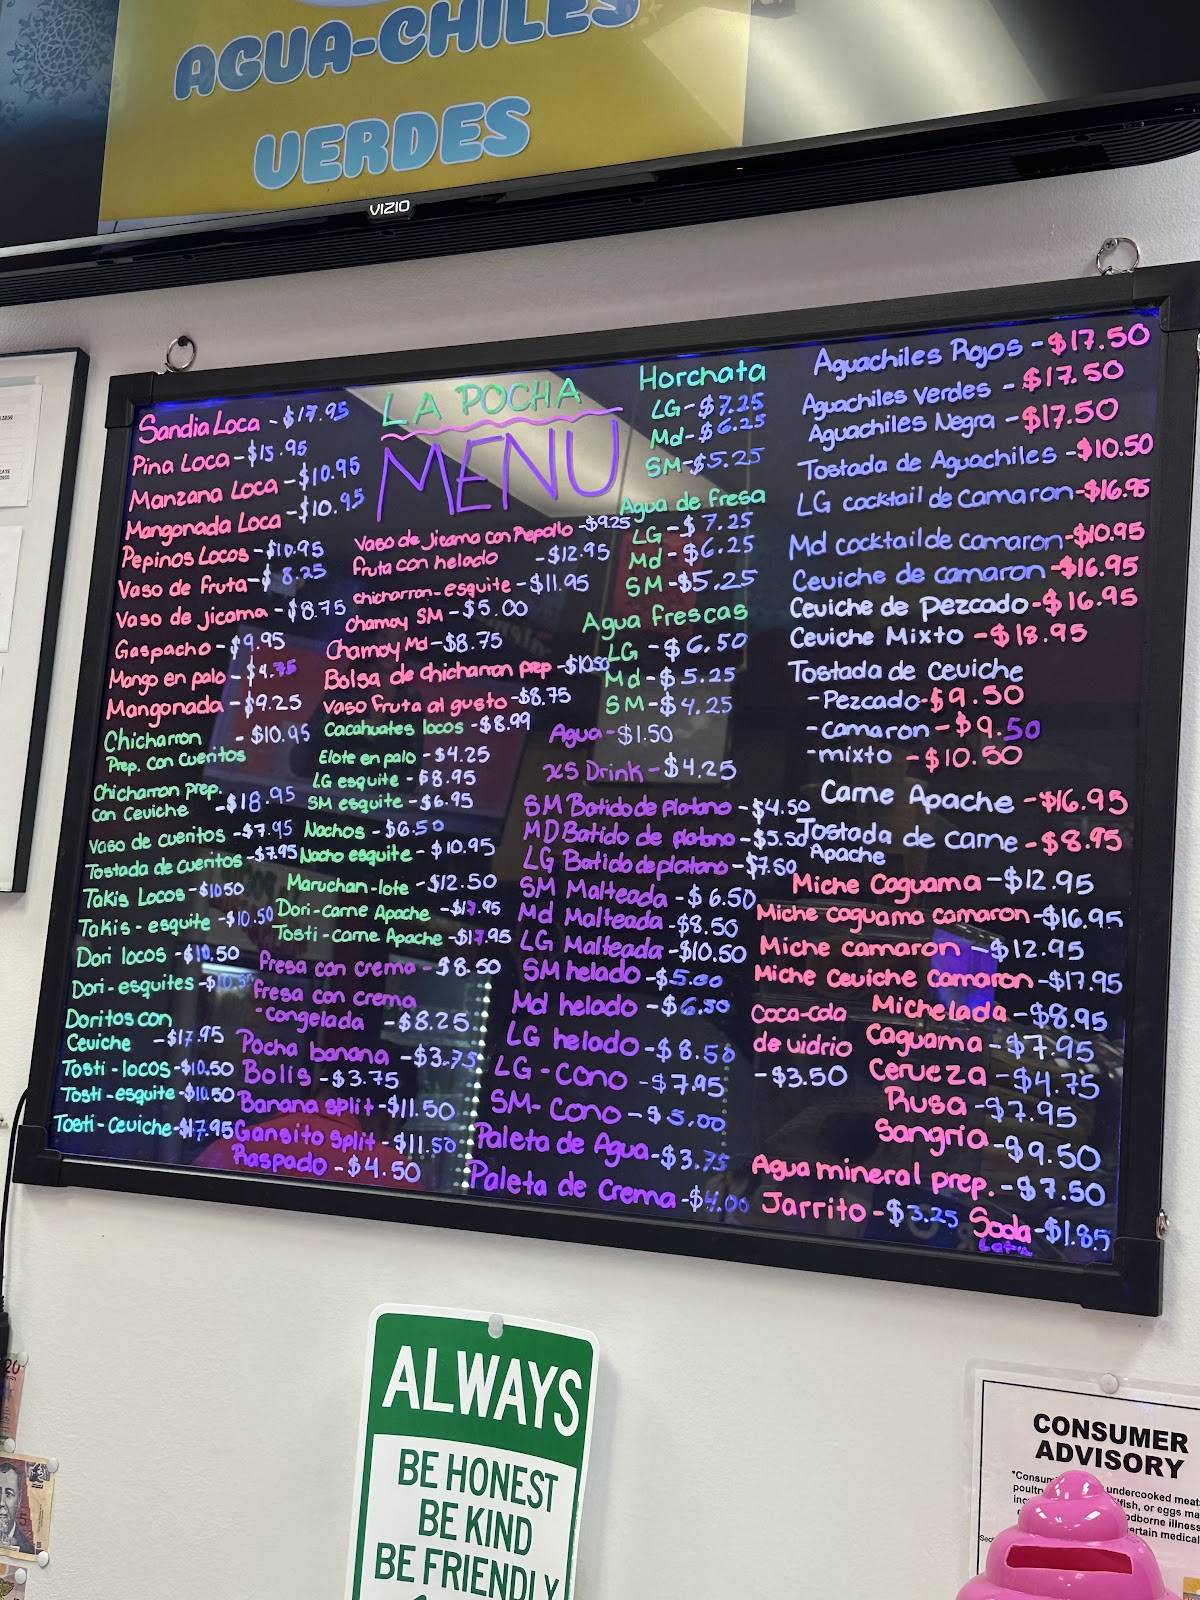 AGUA-CHILES
VERDES
VIZIO
LA POCHA
MENU
Sandia Loca - $17.95
Pina Loca - $15.95
Manzana Loca - $10.95
Mangonada Loca - $10.95
Pepinos Locos - $10.95
Vaso de fruta - $8.25
Vaso de jicama - $8.75
Gaspacho - $9.95
Mango en palo - $4.75
Mangonada - $9.25
Chicharron - $10.95
Prep. con Cueritos
Chicharron prep.
con Ceviche - $18.95
Vaso de cueritos - $7.95
Tostada de cueritos - $7.95
Takis Locos - $10.50
Takis - esquite - $10.50
Dori locos - $10.50
Dori - esquites -
Doritos con
Ceviche - $17.95
Tosti - locos - $10.50
Tosti - esquite - $10.50
Tosti - Ceviche - $17.95
Vaso de Jicama con Pepollo - $9.25
fruta con helado - $12.95
chicharron - esquite - $11.95
Chamoy SM - $5.00
Chamoy Md - $8.75
Bolsa de chicharron prep - $10.50
Vaso Fruta al gusto - $8.75
Cacahuates locos - $8.99
Elote en palo - $4.25
LG esquite - $8.95
SM esquite - $6.95
Nachos - $6.50
Nacho esquite - $10.95
Maruchan - lote - $12.50
Dori - carne Apache - $17.95
Tosti - carne Apache - $17.95
Fresa con crema - $8.50
fresa con crema
- congelada - $8.25
Pocha banana - $3.75
Bolis - $3.75
Banana split - $11.50
Gansito split - $11.50
Raspado - $4.50
Horchata
LG - $7.25
Md - $6.25
SM - $5.25
Agua de fresa
LG - $7.25
Md - $6.25
SM - $5.25
Agua frescas
LG - $6.50
Md - $5.25
SM - $4.25
Agua - $1.50
XS Drink - $4.25
SM Batido de platano - $4.50
MD Batido de platano - $5.50
LG Batido de platano - $7.50
SM Malteada - $6.50
Md Malteada - $8.50
LG Malteada - $10.50
SM helado - $5.00
Md helado - $6.50
LG helado - $8.50
LG - cono - $7.95
SM - Cono - $5.00
Paleta de Agua - $3.75
Paleta de Crema - $4.00
Aguachiles Rojos - $17.50
Aguachiles verdes - $17.50
Aguachiles Negra - $17.50
Tostada de Aguachiles - $10.50
LG cocktail de camaron - $16.95
Md cocktail de camaron - $10.95
Ceviche de camaron - $16.95
Ceviche de Pezcado - $16.95
Ceviche Mixto - $18.95
Tostada de Ceviche
- Pezcado - $9.50
- camaron - $9.50
- mixto - $10.50
Carne Apache - $16.95
Tostada de carne - $8.95
Apache
Miche Caguama - $12.95
Miche caguama camaron - $16.95
Miche camaron - $12.95
Miche Ceviche camaron - $17.95
Coca-cola
de vidrio
- $3.50
Michelada - $8.95
Caguama - $7.95
Cerveza - $4.75
Rusa - $7.95
Sangria - $9.50
Agua mineral prep. - $7.50
Jarrito - $3.25
Soda - $1.85
Lata
ALWAYS
BE HONEST
BE KIND
BE FRIENDLY
CONSUMER
ADVISORY
undercooked meat
or eggs